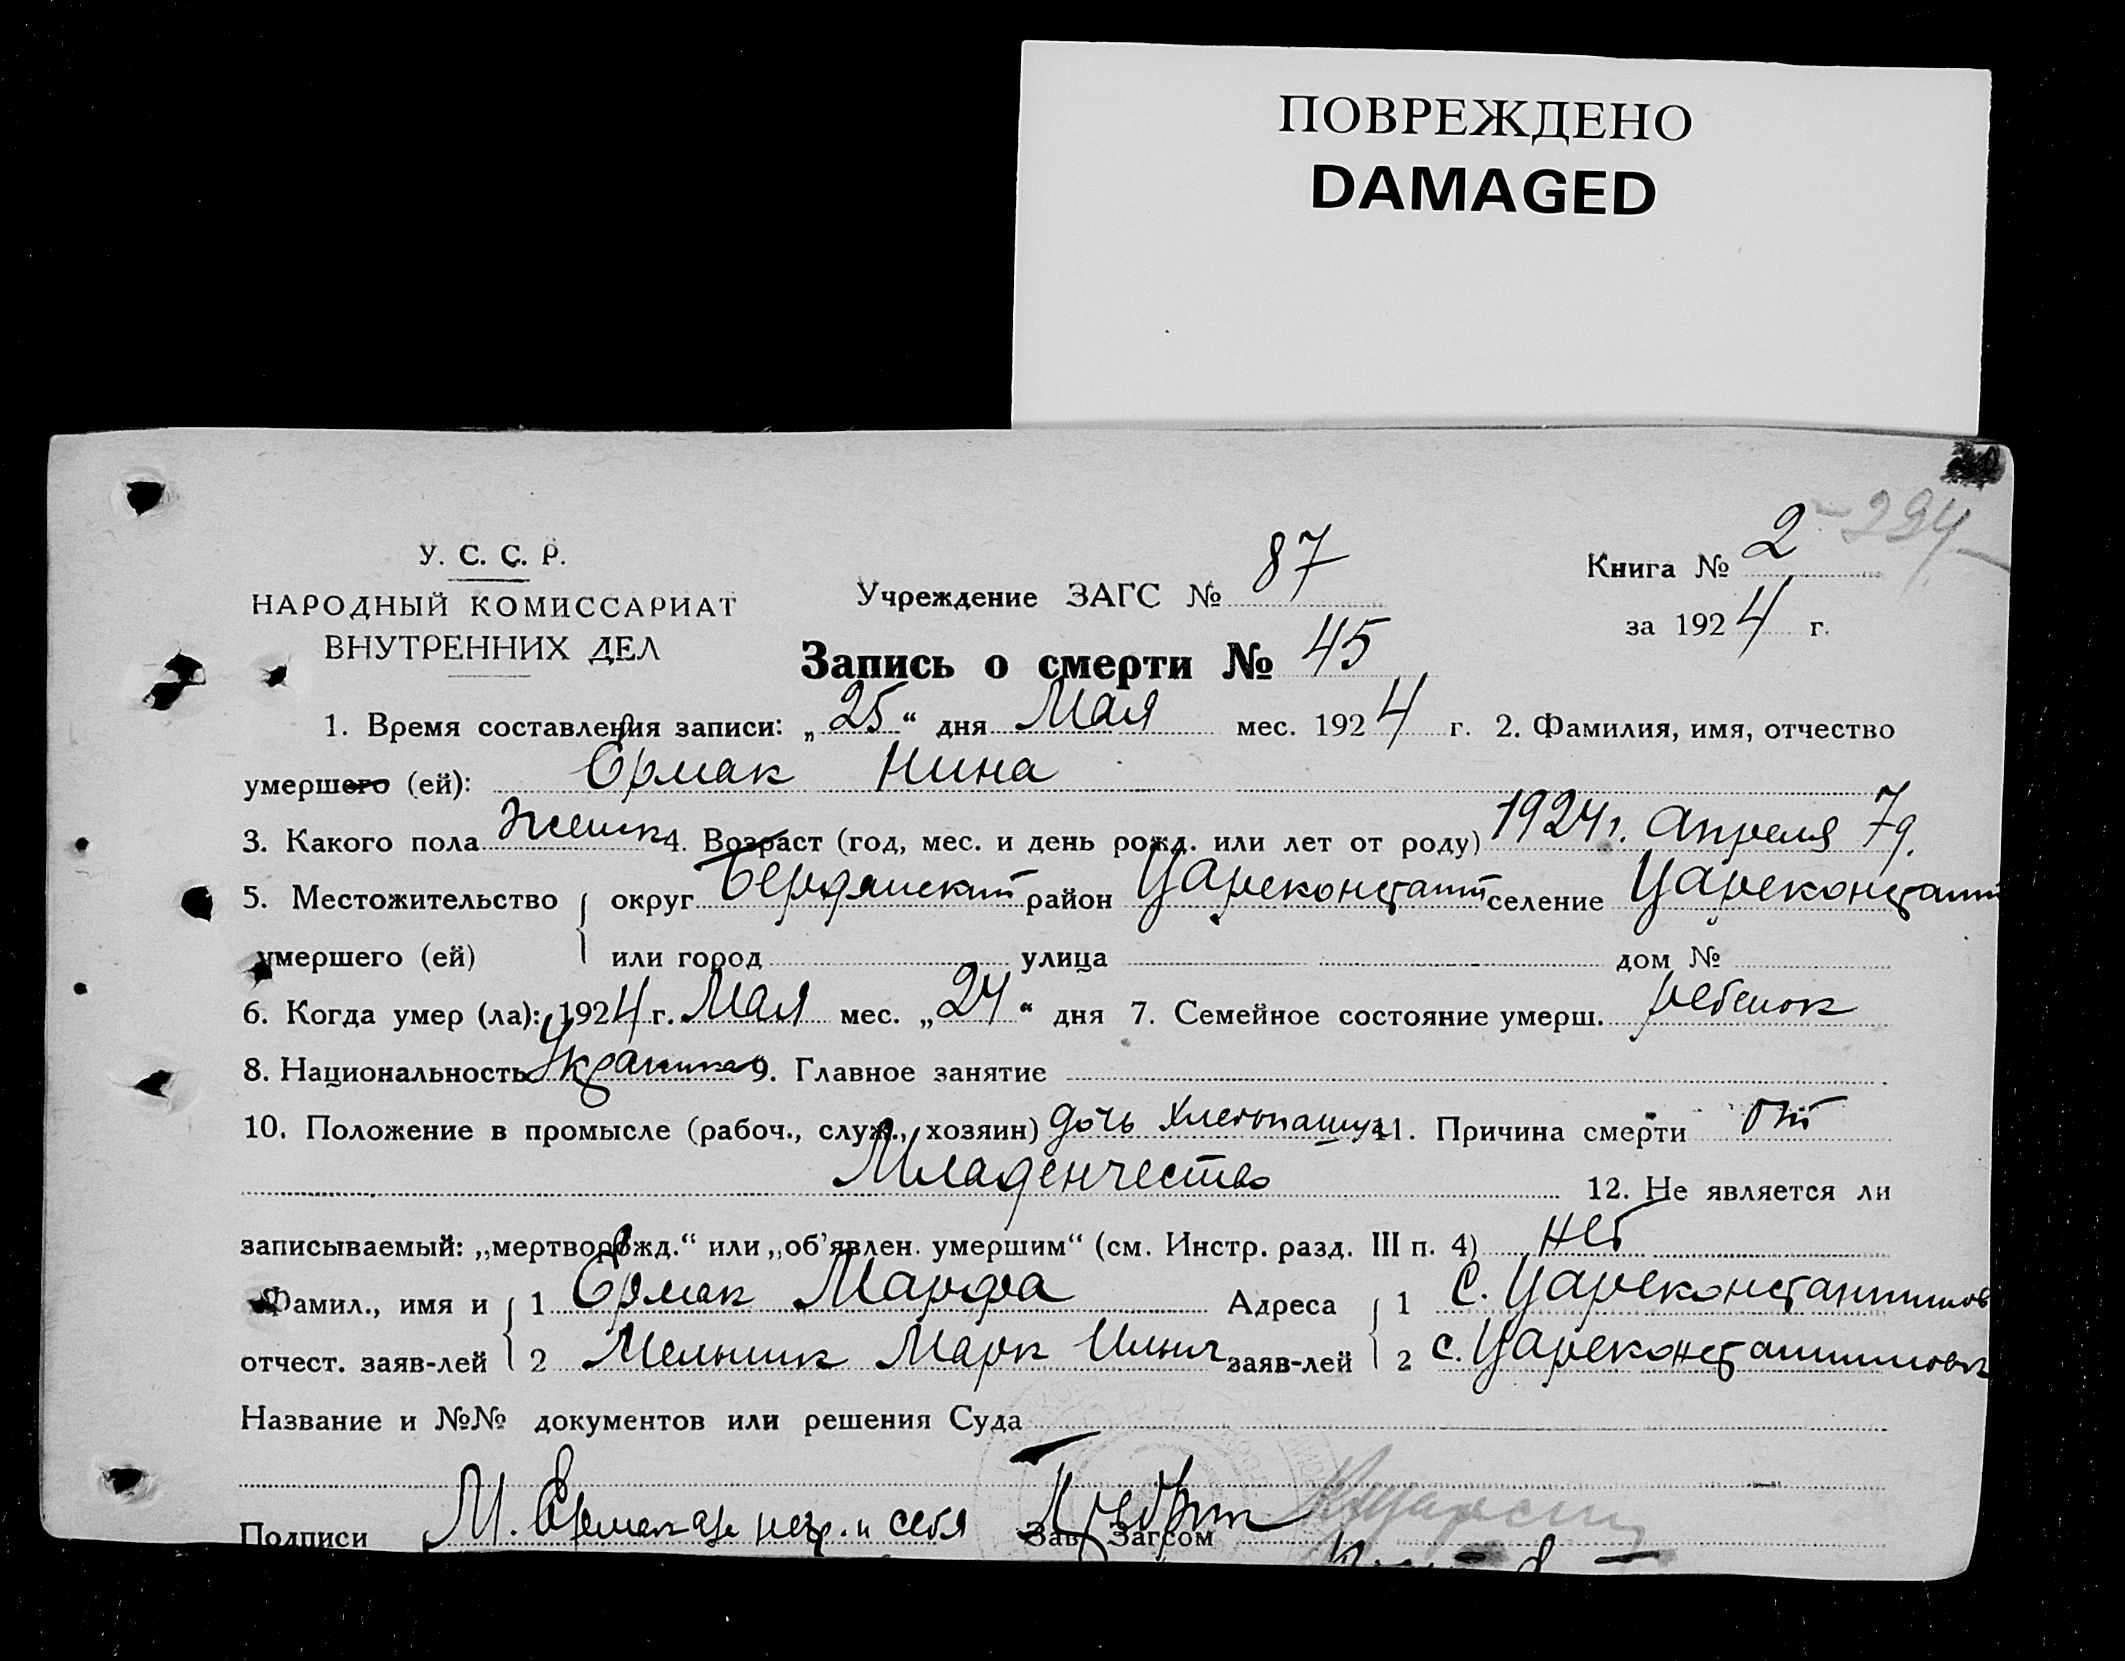 ПОВРЕЖДЕНО
DAMAGED
294
У. С. С. Р.
НАРОДНЫЙ КОМИССАРИАТ
ВНУТРЕННИХ ДЕЛ
Учреждение ЗАГС № 87
Книга № 2
за 1924 г.
Запись о смерти № 45
1. Время составления записи: „25“ дня Мая мес. 1924 г. 2. Фамилия, имя, отчество
умершего (ей): Ермак Нина
3. Какого пола женск 4. Возраст (год, мес. и день рожд. или лет от роду) 1924 г. Апреля 7 д.
5. Местожительство округ Бердянский район Цареконстант селение Цареконстант
умершего (ей) или город улица дом №
6. Когда умер (ла): 1924 г. Мая мес. „24“ дня 7. Семейное состояние умерш. ребенок
8. Национальность Украинка 9. Главное занятие
10. Положение в промысле (рабоч., служ., хозяин) дочь хлебопашца 11. Причина смерти от
Младенчества 12. Не является ли
записываемый: „мертворожд.“ или „об'явлен. умершим“ (см. Инстр. разд. III п. 4) нет
Фамил., имя и 1 Ермак Марфа Адреса 1 С. Цареконстантинов
отчест. заяв-лей 2 Мельник Марк Ильич заяв-лей 2 с. Цареконстантиновк
Название и №№ документов или решения Суда
Подписи М. Ермак за негр. и себя Зав. Загсом